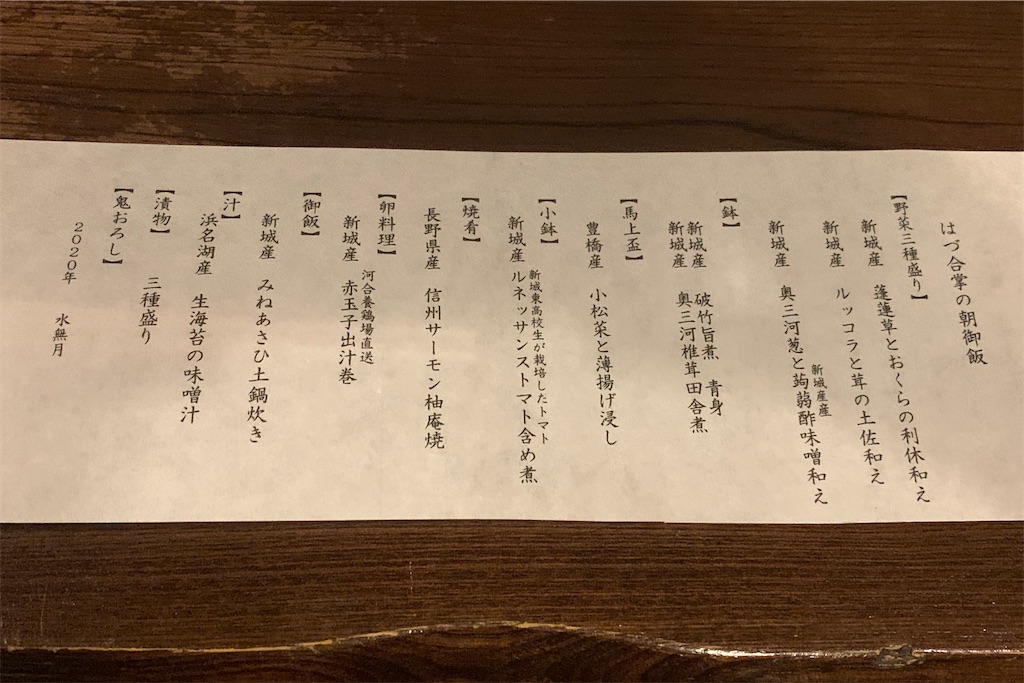 はづ合掌の朝御飯
【野菜三種盛り】
新城産 蓬蓮草とおくらの利休和え
新城産 ルッコラと茸の土佐和え
新城産産
新城産 奥三河葱と蒟蒻酢味噌和え
【鉢】
新城産 破竹旨煮 青身
新城産 奥三河椎茸田舎煮
【馬上盃】
豊橋産 小松菜と薄揚げ浸し
【小鉢】
新城東高校生が栽培したトマト
新城産 ルネッサンストマト含め煮
【焼肴】
長野県産 信州サーモン柚庵焼
【卵料理】
河合養鶏場直送
新城産 赤玉子出汁巻
【御飯】
新城産 みねあさひ土鍋炊き
【汁】
浜名湖産 生海苔の味噌汁
【漬物】
三種盛り
【鬼おろし】
2020年 水無月